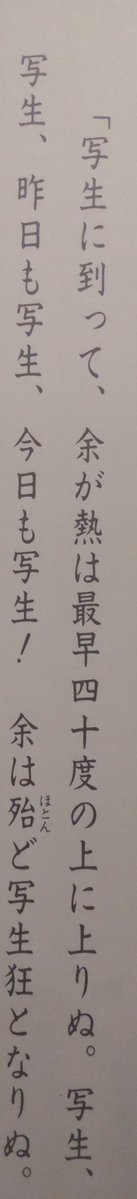 「写生に到って、余が熱は最早四十度の上に上りぬ。写生、
写生、昨日も写生、今日も写生！余は殆ど写生狂となりぬ。
ほとん